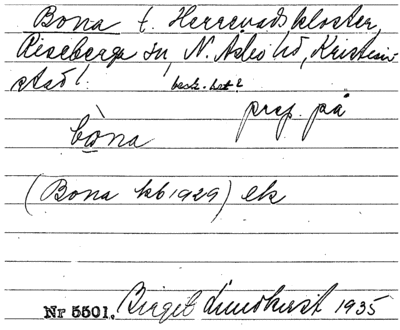 Bona t. Herrevadskloster,
Riseberga sn, N. Åsbo hd, Kristian-
stads l.
prep. på
bòna
(Bona kb 1929) ek
Nr 5501. Birgit Lundkvist 1935